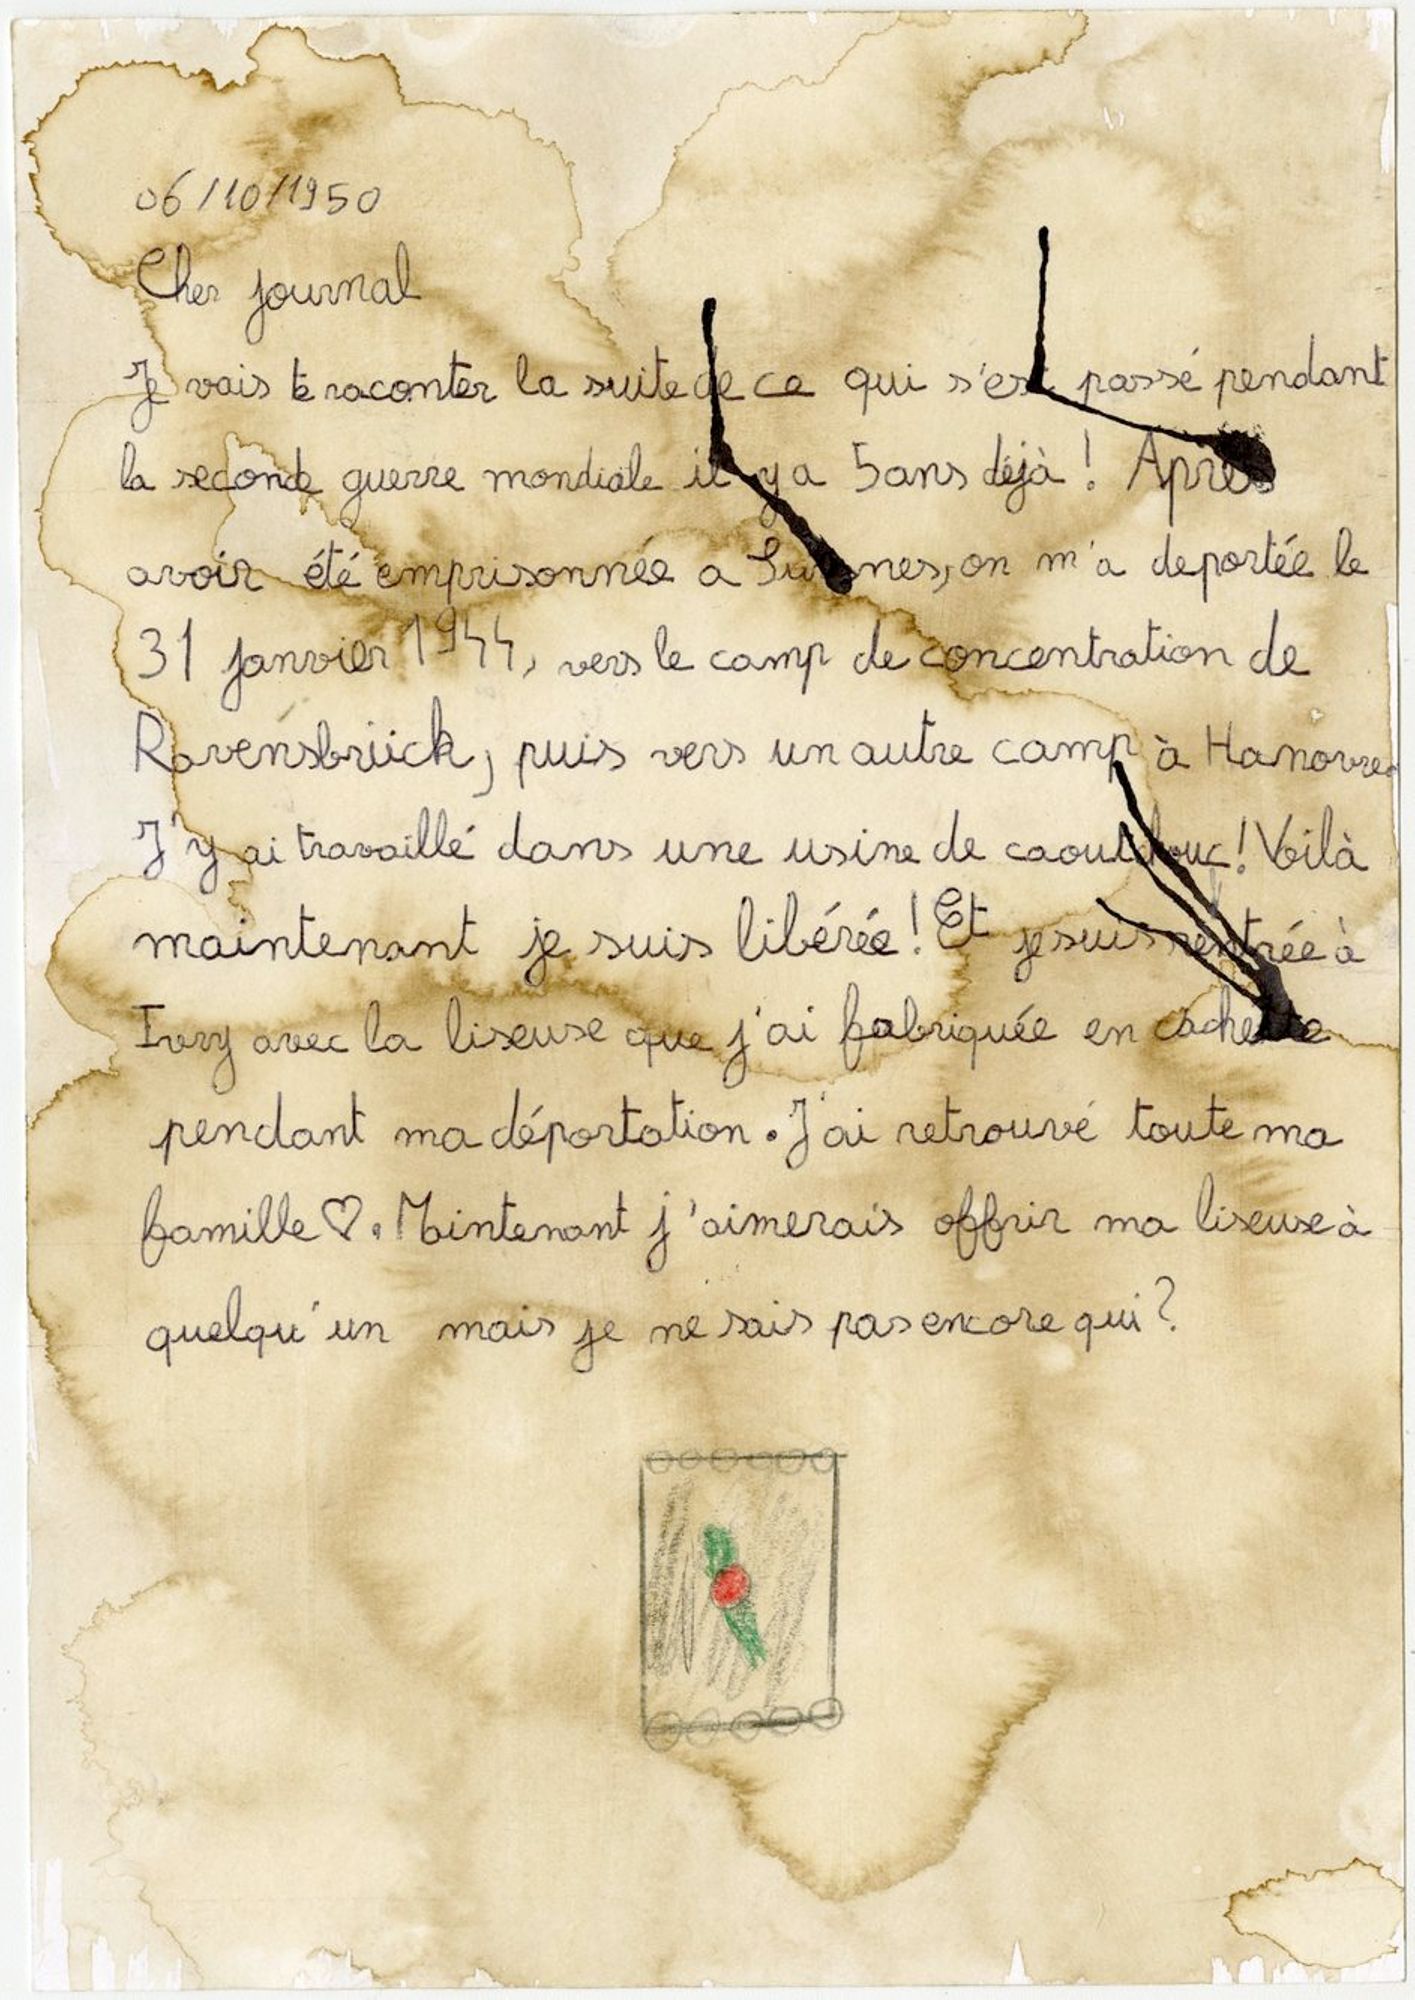 06/10/1950
Cher journal
Je vais te raconter la suite de ce qui s'est passé pendant
la seconde guerre mondiale il y a 5 ans déjà ! Après
avoir été emprisonnée a on m'a deportée le
31 janvier 1944, vers le camp de concentration de
Ravensbrück, puis vers un autre camp à Hanovre.
J'y ai travaillé dans une usine de caoutchouc ! Voilà
maintenant je suis libérée ! Et je suis rentrée à
Ivry avec la liseuse que j'ai fabriquée en cachette
pendant ma déportation. J'ai retrouvé toute ma
famille ♡. Maintenant j'aimerais offrir ma liseuse à
quelqu'un mais je ne sais pas encore qui ?